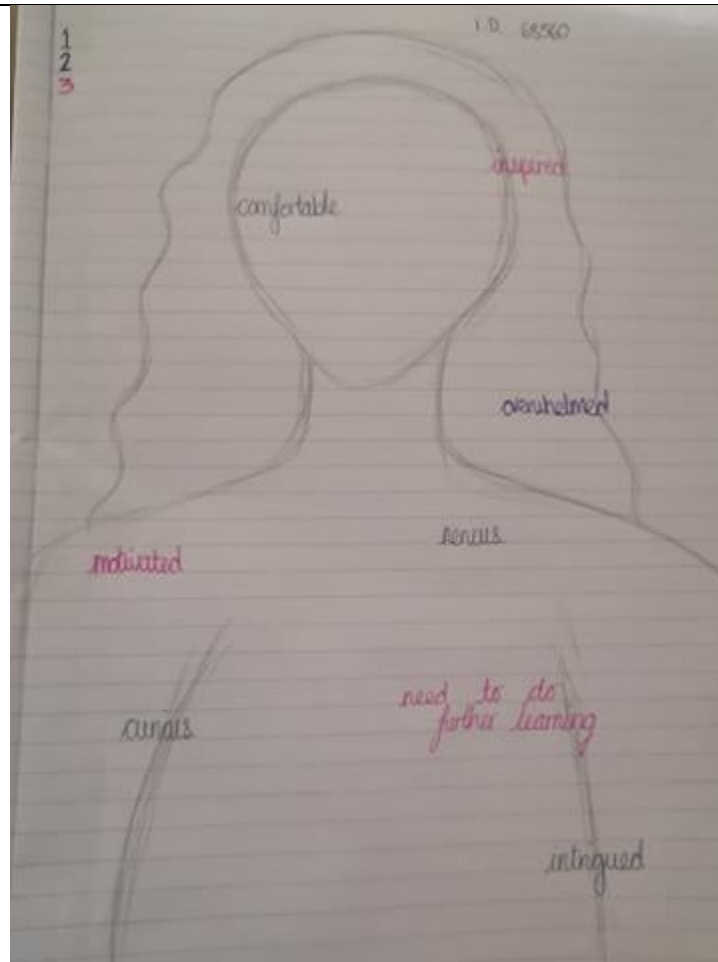 I.D. 68560
1
2
3
inspired
comfortable
overwhelmed
nervous
motivated
need to do
further learning
curious
intrigued